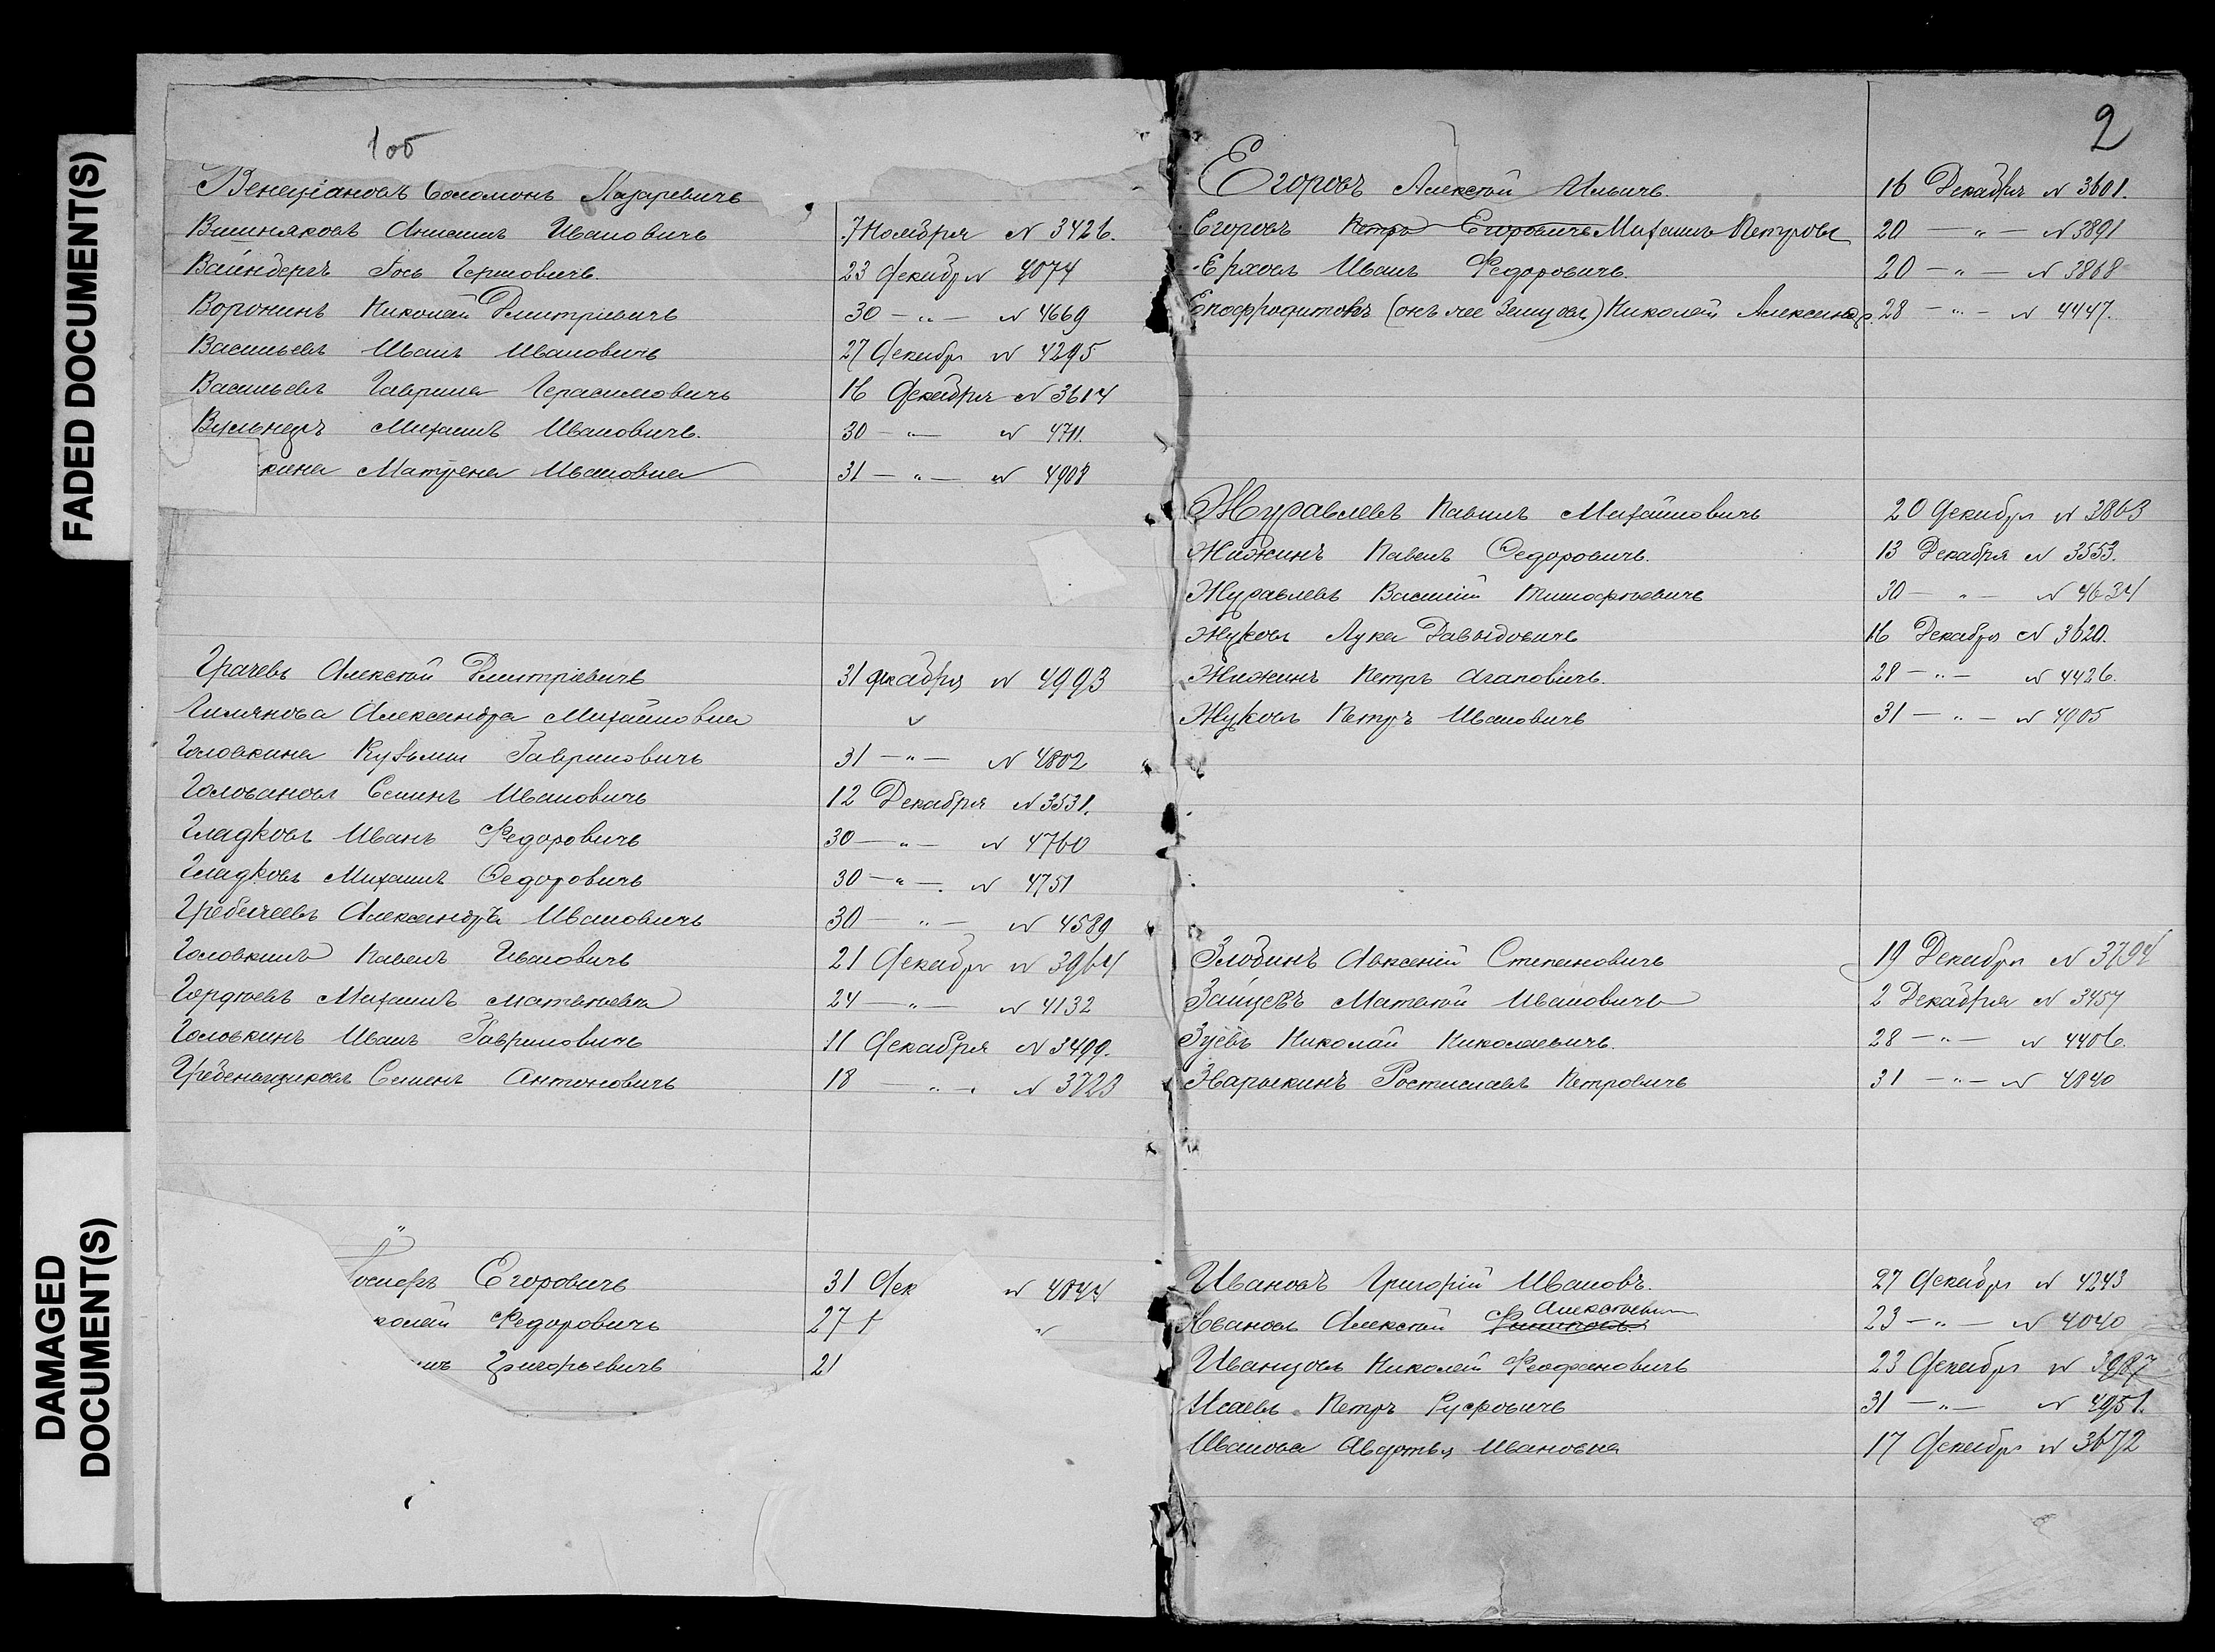 FADED DOCUMENT(S)
DAMAGED
DOCUMENT(S)
1об
Венеціановъ Соломонъ Лазаревичъ
Вишняковъ Анисимъ Ивановичъ 7 Ноября № 3426.
Вайнбергъ Іось Гершовичъ. 23 Декабр № 4074
Воронинъ Николай Дмитріевичъ 30 — „ — № 4669
Васильевъ Иванъ Ивановичъ 27 Декабр № 4295
Васильевъ Гаврила Герасимовичъ 16 Декабря № 3614
Михаилъ Ивановичъ. 30 — „ — № 4711.
кина Матрена Ивановна 31 — „ — № 4908
Грачевъ Алексѣй Дмитріевичъ 31 декабря № 4993
Александра Михайловна ν
Головкина Кузьма Гавриловичъ 31 — „ — № 4802
Головановъ Семенъ Ивановичъ 12 Декабря № 3531.
Гладковъ Иванъ Федоровичъ 30 — „ — № 4760
Гладковъ Михаилъ Ѳедоровичъ 30 — „ — № 4751
Александръ Ивановичъ 30 — „ — № 4589
Головкинъ Павелъ Ивановичъ 21 Декабр № 3964
Гордѣевъ Михаилъ Матвѣевъ 24 — „ — № 4132
Головкинъ Иванъ Гавриловичъ 11 Декабря № 3499.
Гребенщиковъ Семенъ Антоновичъ 18 — „ — № 3723
Егоровичъ 31 Дек № 4844
колай Федоровичъ 27
Григорьевичъ 21
2
Егоровъ Алексѣй Ильичъ. 16 Декабря № 3601.
Егоровъ Петръ Егоровичъ Михаилъ Петровъ 20 — „ — № 3891
Ерховъ Иванъ Федоровичъ. 20 — „ — № 3868
Епафродитовъ (онъ же Земцовъ) Николай Александр. 28 — „ — № 4447.
Журавлевъ Павелъ Михайловичъ 20 Декабр № 3863
Жижинъ Павелъ Ѳедоровичъ. 13 Декабря № 3553.
Журавлевъ Василій Тимофѣевичъ 30 — „ — № 4634
Жуковъ Лука Давыдовичъ 16 Декабря № 3620.
Жижинъ Петръ Агаповичъ. 28 — „ — № 4426.
Жуковъ Петръ Ивановичъ 31 — „ — № 4905
Злобинъ Авксеній Степановичъ 19 Декабря № 3794
Зайцевъ Матвѣй Ивановичъ 2 Декабря № 3457
Зуевъ Николай Николаевичъ. 28 — „ — № 4406.
Зварыкинъ Ростиславъ Петровичъ 31 — „ — № 4840
Ивановъ Григорій Ивановъ. 27 Декабр № 4243
Ивановъ Алексѣй Алексѣевич 23 — „ — № 4040
Иванцовъ Николай Феофановичъ 23 Декабр № 3987
Исаевъ Петръ Гусровичъ 31 — „ — № 4951.
Иванова Авдотья Ивановна 17 Декабр № 3672